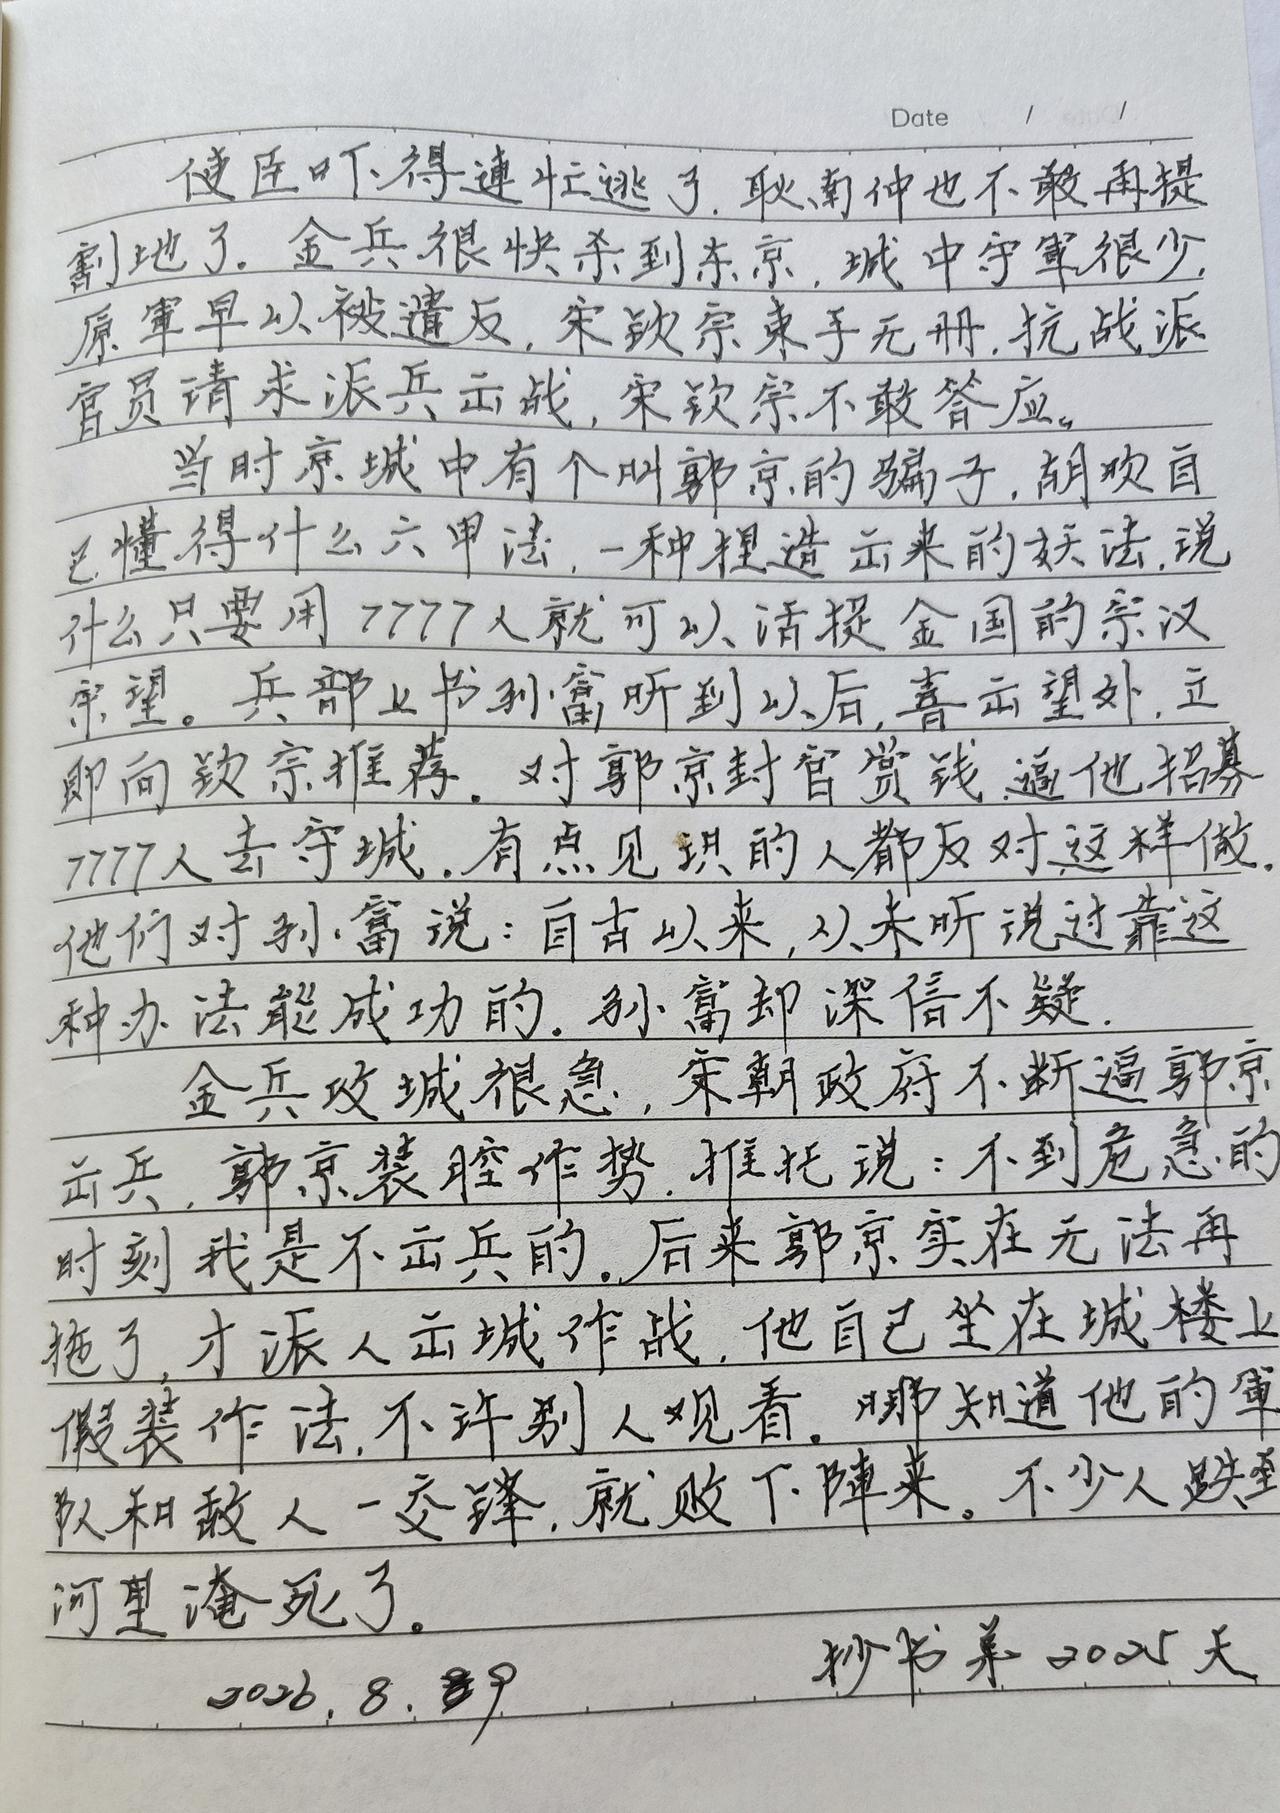 Date / /
使臣吓得連忙逃了.耿南仲也不敢再提
割地了.金兵很快杀到东京,城中守軍很少,
原軍早以被遣反,宋钦宗束手无册.抗战派
官员请求派兵出战,宋钦宗不敢答应。
当时京城中有个叫郭京的骗子,胡吹自
己懂得什么六甲法,一种捏造出来的妖法.说
什么只要用7777人就可以活捉金国的宗汉
宗望。兵部上书孙富听到以后,喜出望外,立
即向钦宗推荐.对郭京封官赏钱逼他招募
7777人去守城.有点见识的人都反对这样做.
他们对孙富说:自古以来,以未听说过靠这
种办法能成功的.孙富却深信不疑.
金兵攻城很急,宋朝政府不断逼郭京
出兵,郭京装腔作势.推托说:不到危急的
时刻我是不出兵的.后来郭京实在无法再
拖了,才派人出城作战,他自己坐在城楼上
假装作法,不许别人观看.哪知道他的軍
队和敌人一交锋,就败下陣来。不少人跌到
河里淹死了。
抄书第2025天
2026.8.9